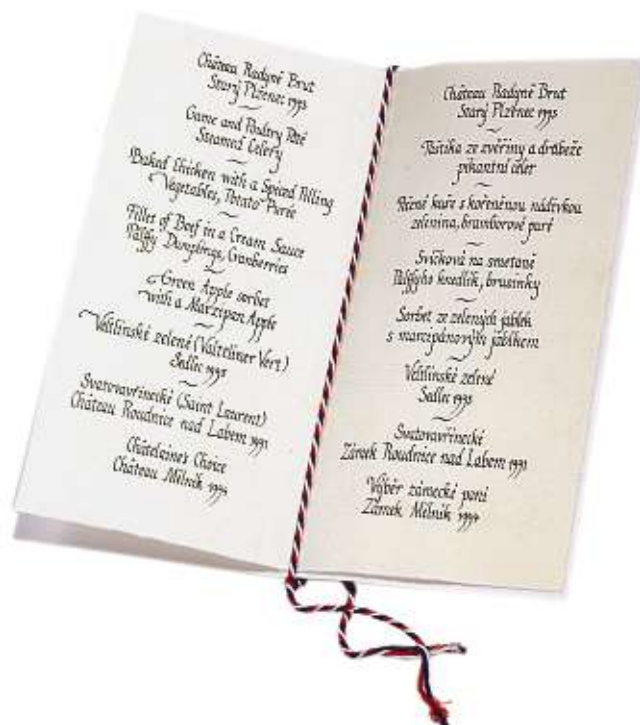 Château Radyně Brut
Starý Plzenec 1995
Game and Poultry Pâté
Steamed Celery
Baked Chicken with a Spiced Filling
Vegetables, Potato Purée
Fillet of Beef in a Cream Sauce
Pálffy Dumplings, Cranberries
Green Apple sorbet
with a Marzipan Apple
Veltlinské zelené (Valteliner Vert)
Sedlec 1995
Svatovavřinecké (Saint Laurent)
Château Roudnice nad Labem 1991
Châtelaine's Choice
Château Mělník 1994
Château Radyně Brut
Starý Plzenec 1995
Paštika ze zvěřiny a drůbeže
pikantní celer
Pečené kuře s kořeněnou nádivkou
zelenina, bramborové pyré
Svíčková na smetaně
Pálffyho knedlík, brusinky
Sorbet ze zelených jablek
s marcipánovým jablkem
Veltlinské zelené
Sedlec 1995
Svatovavřinecké
Zámek Roudnice nad Labem 1991
Výběr zámecké paní
Zámek Mělník 1994